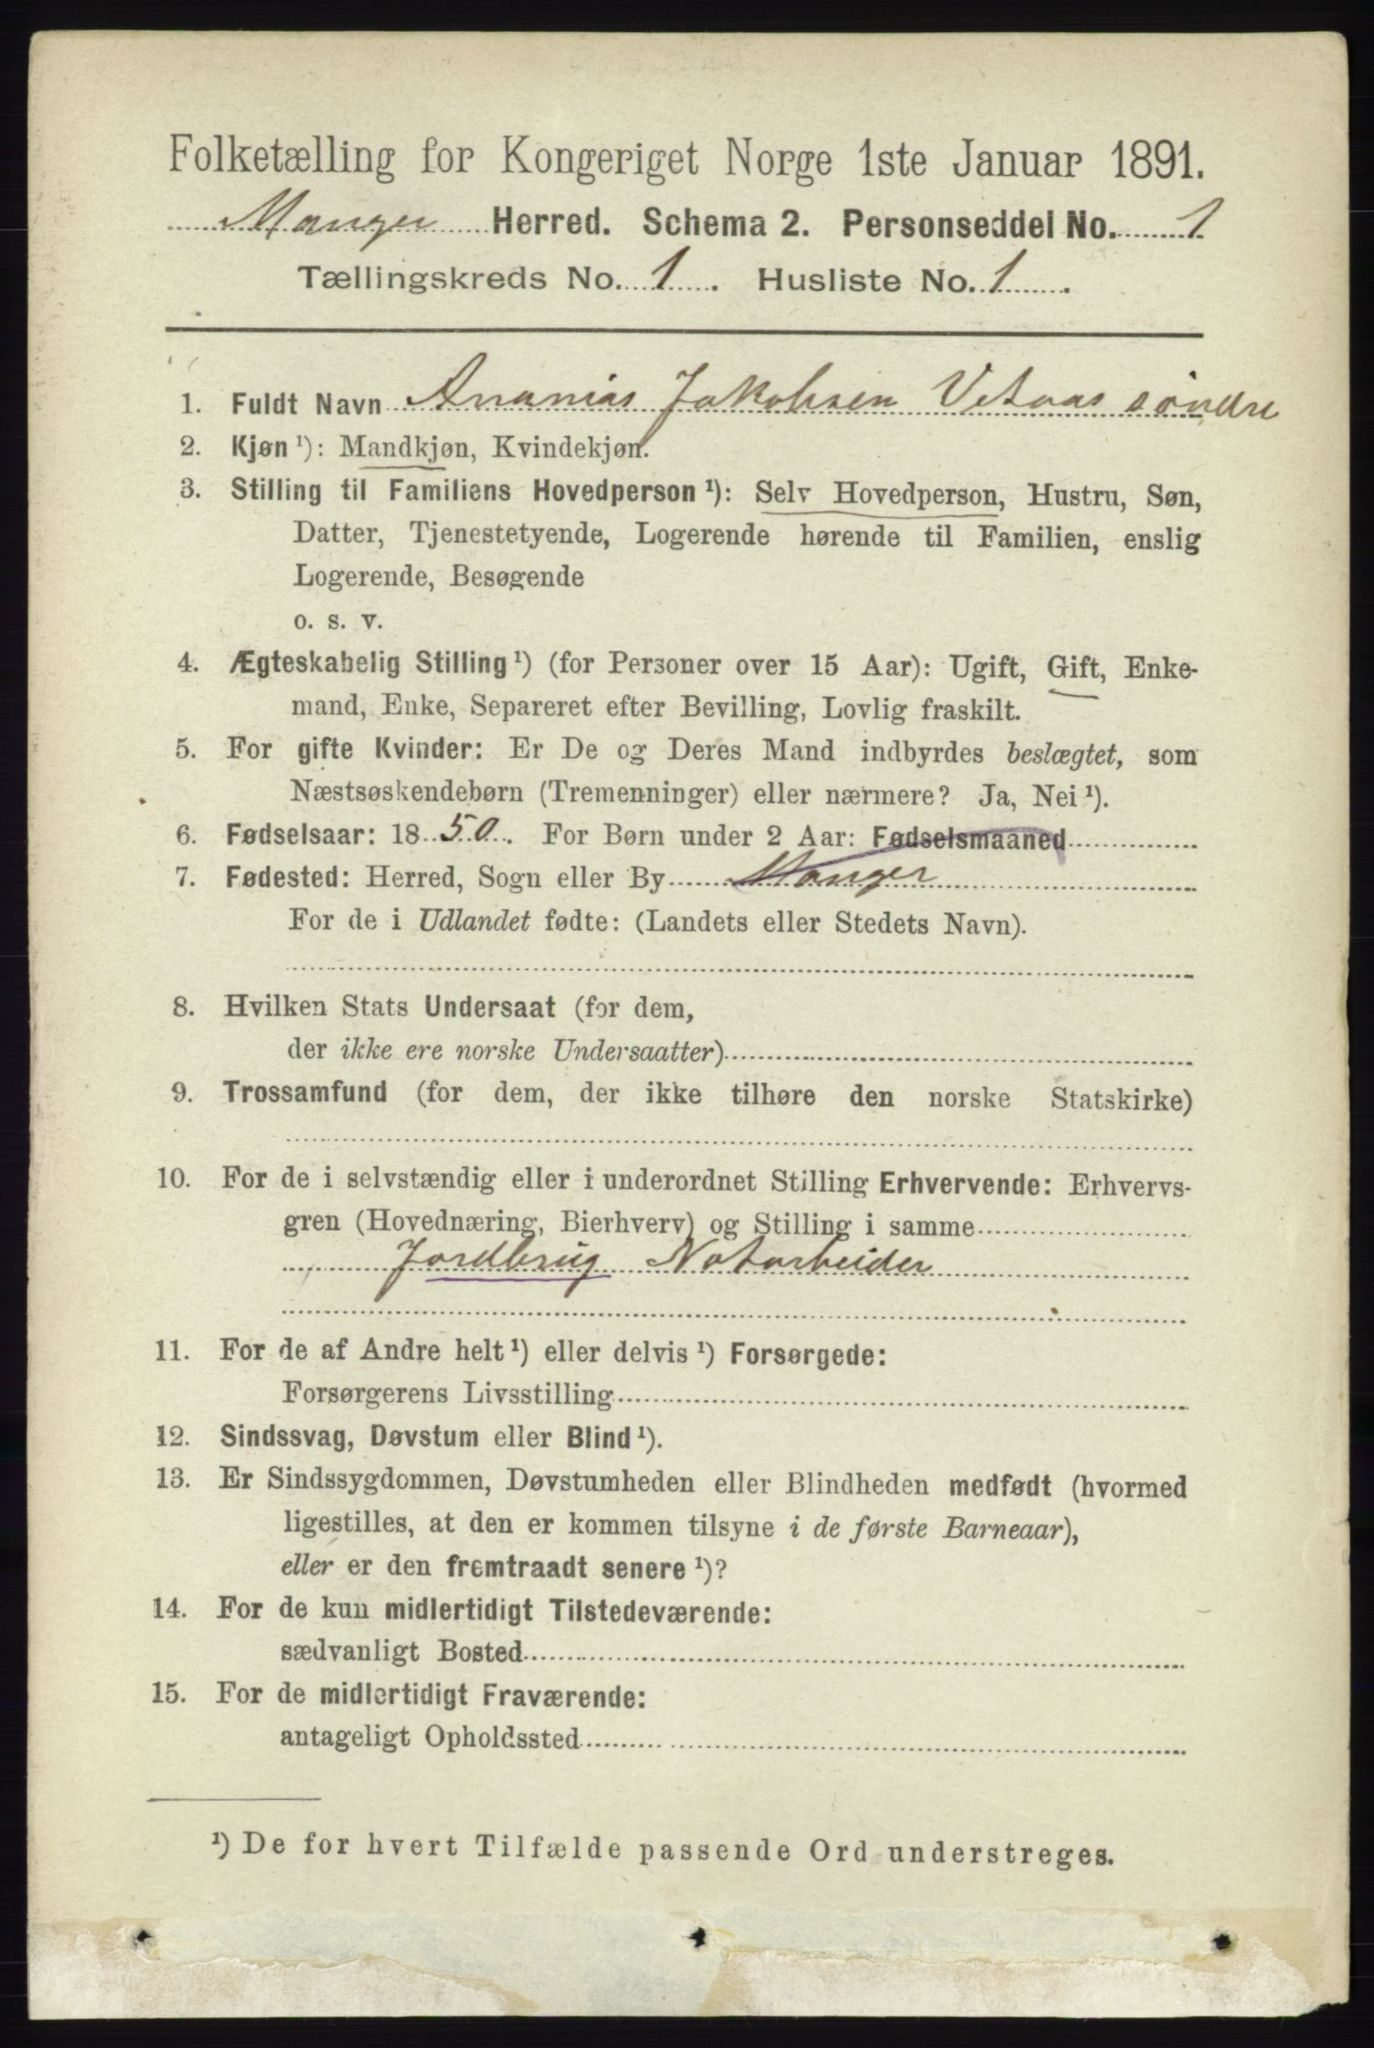 Folketælling for Kongeriget Norge 1ste Januar 1891.
Manger Herred. Schema 2. Personseddel No. 1
Tællingskreds No. 1. Husliste No. 1.
1. Fuldt Navn Ananias Jakobsen Vetaas søndre
2. Kjøn ¹): Mandkjøn, Kvindekjøn.
3. Stilling til Familiens Hovedperson ¹): Selv Hovedperson, Hustru, Søn,
Datter, Tjenestetyende, Logerende hørende til Familien, enslig
Logerende, Besøgende
o. s. v.
4. Ægteskabelig Stilling ¹) (for Personer over 15 Aar): Ugift, Gift, Enke-
mand, Enke, Separeret efter Bevilling, Lovlig fraskilt.
5. For gifte Kvinder: Er De og Deres Mand indbyrdes beslægtet, som
Næstsøskendebørn (Tremenninger) eller nærmere? Ja, Nei ¹).
6. Fødselsaar: 1850. For Børn under 2 Aar: Fødselsmaaned
7. Fødested: Herred, Sogn eller By Manger
For de i Udlandet fødte: (Landets eller Stedets Navn).
8. Hvilken Stats Undersaat (for dem,
der ikke ere norske Undersaatter)
9. Trossamfund (for dem, der ikke tilhøre den norske Statskirke)
10. For de i selvstændig eller i underordnet Stilling Erhvervende: Erhvervs-
gren (Hovednæring, Bierhverv) og Stilling i samme
Jordbrug Notarbeider
11. For de af Andre helt ¹) eller delvis ¹) Forsørgede:
Forsørgerens Livsstilling
12. Sindssvag, Døvstum eller Blind ¹).
13. Er Sindssygdommen, Døvstumheden eller Blindheden medfødt (hvormed
ligestilles, at den er kommen tilsyne i de første Barneaar),
eller er den fremtraadt senere ¹)?
14. For de kun midlertidigt Tilstedeværende:
sædvanligt Bosted
15. For de midlertidigt Fraværende:
antageligt Opholdssted
¹) De for hvert Tilfælde passende Ord understreges.